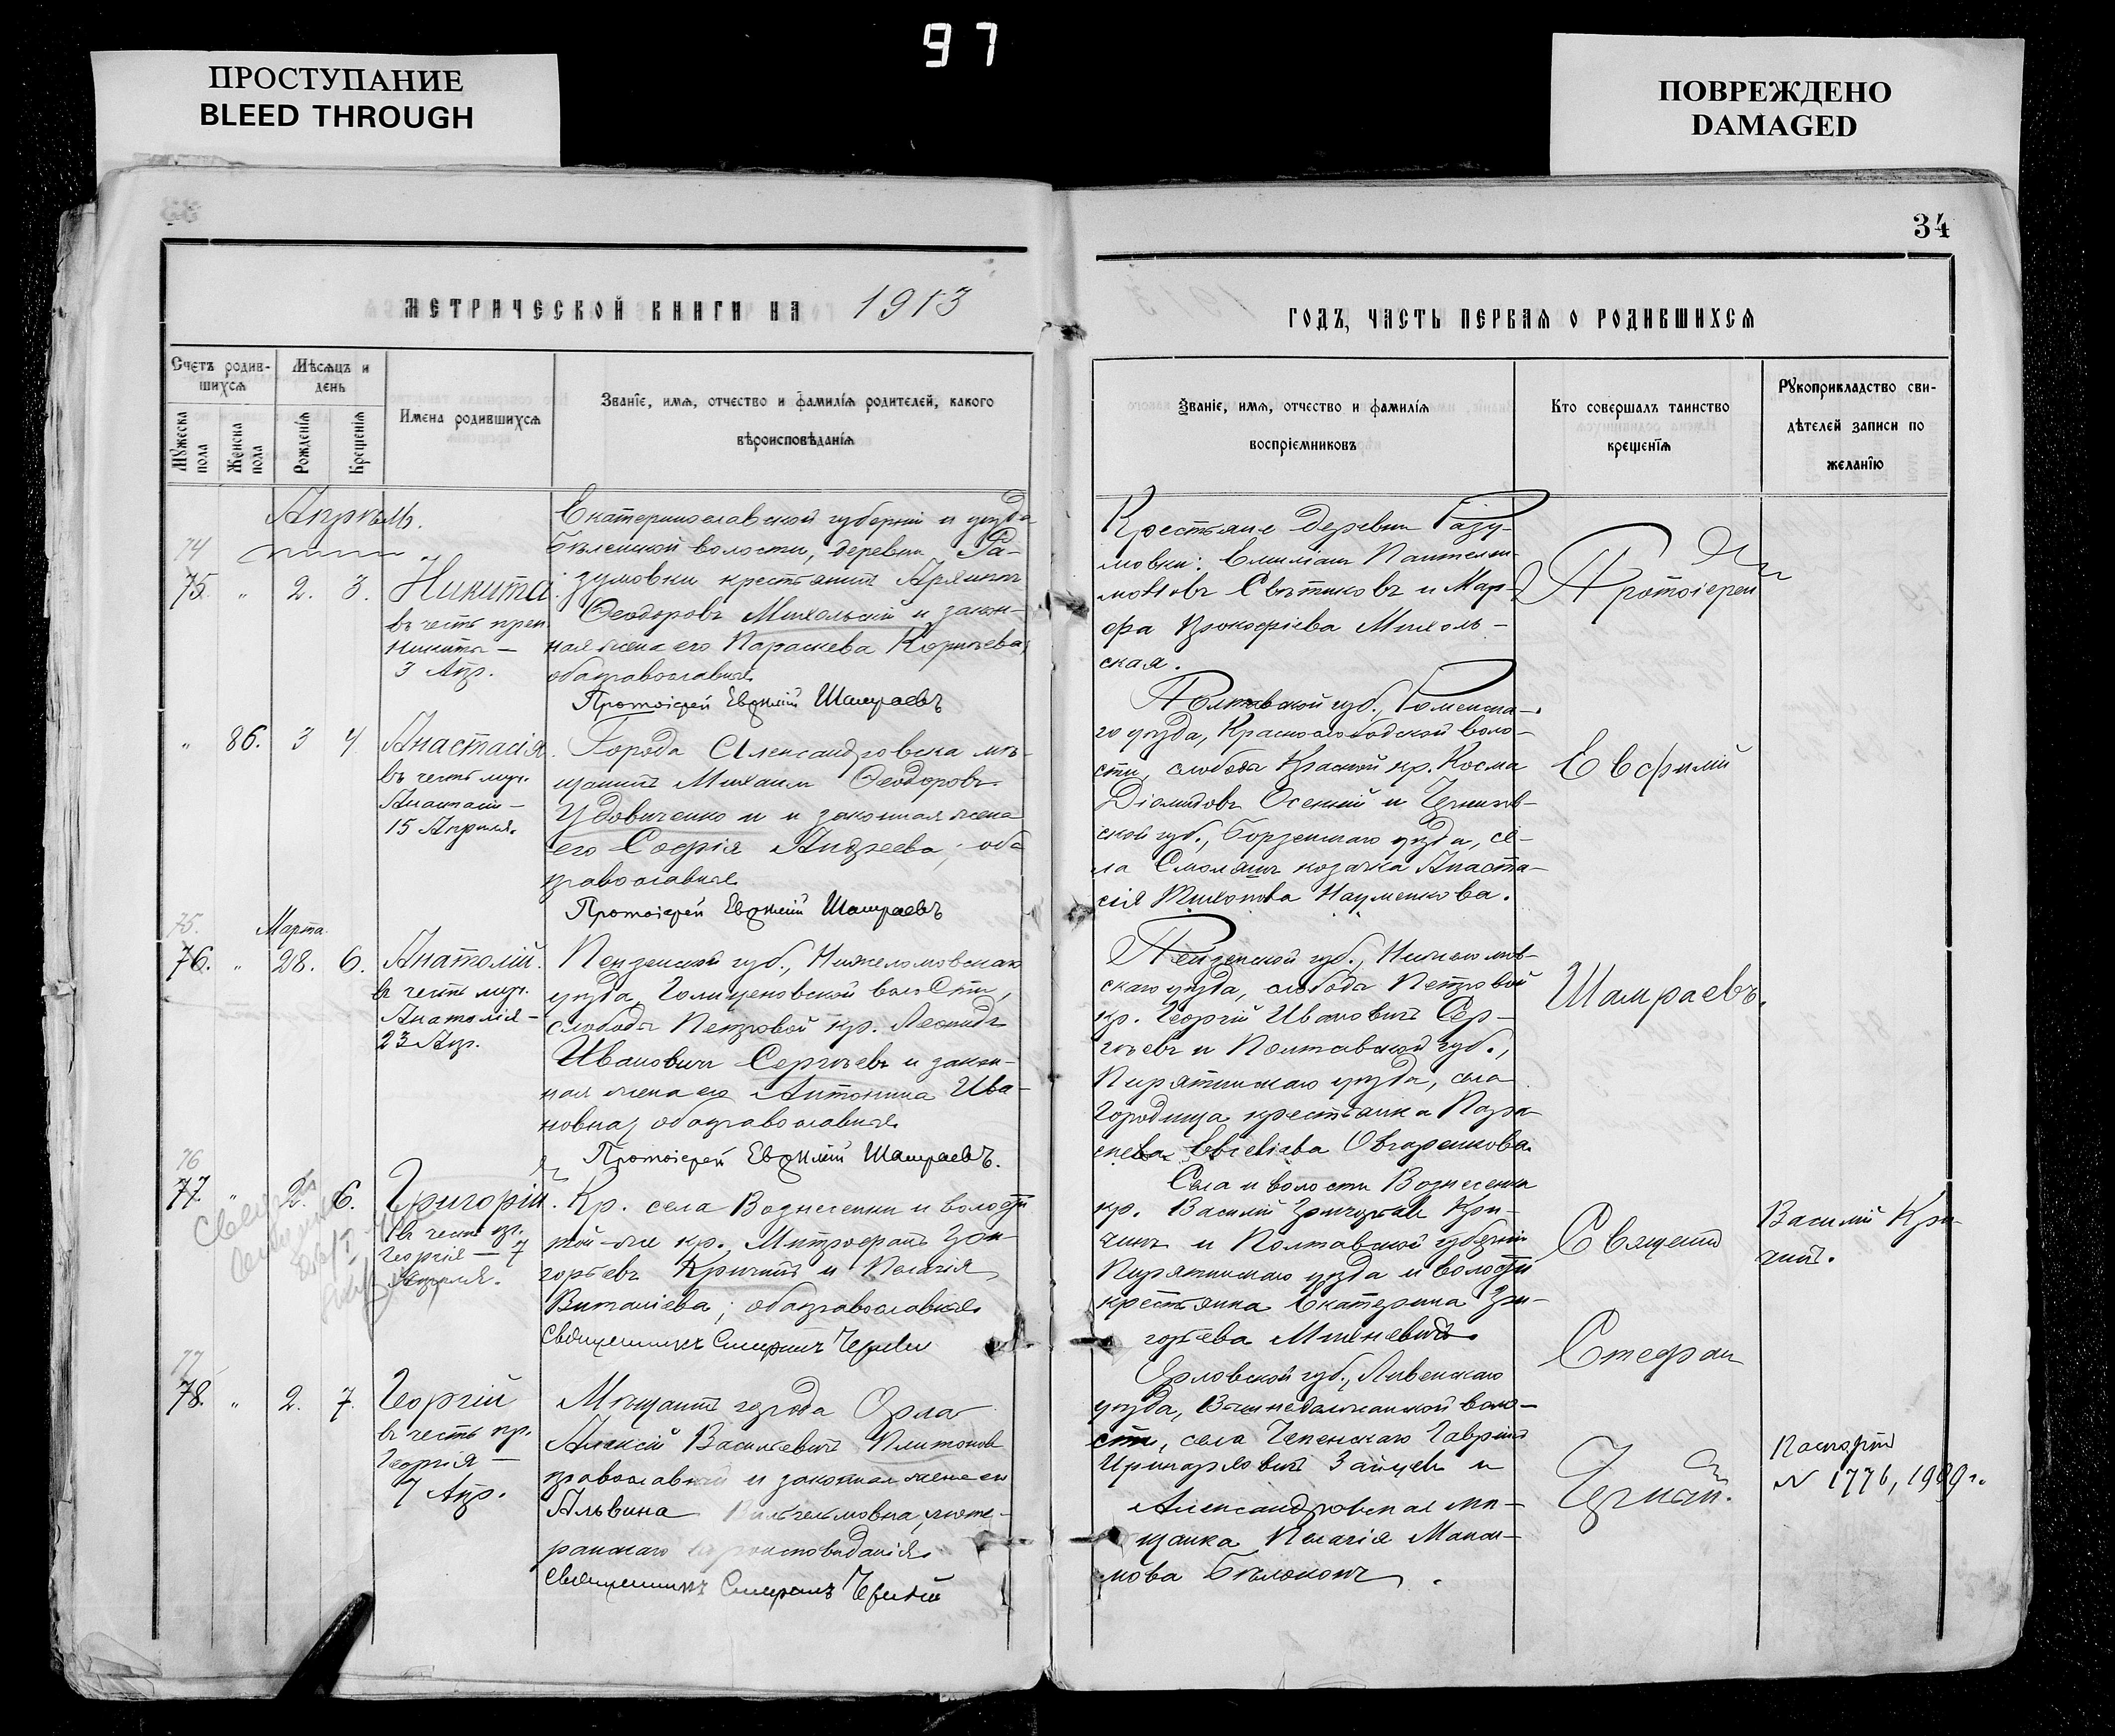 97
ПРОСТУПАНИЕ
BLEED THROUGH
ПОВРЕЖДЕНО
DAMAGED
34
МЕТРИЧЕСКОЙ КНИГИ НА 1913
ГОДЪ, ЧАСТЬ ПЕРВАЯ О РОДИВШИХСЯ
Счетъ родив-
шихся
Мужеска пола
Женска пола
Мѣсяцъ и
день
Рожденія
Крещенія
Имена родившихся
Званіе, имя, отчество и фамилія родителей, какого
вѣроисповѣданія
Званіе, имя, отчество и фамилія
воспріемниковъ
Кто совершалъ таинство
крещенія
Рукоприкладство сви-
дѣтелей записи по
желанію
Апрѣль.
74
75. " 2. 3. Никита
въ честь преп.
Никиты —
3 Апр.
Екатеринославской губерніи и уѣзда
Бѣленской волости, деревни Ра-
зумовки крестьянинъ
Ѳеодоровъ Михальскій и закон-
ная жена его Параскева Корнѣева,
оба православные
Протоіерей Евѳимій Шамраевъ
Крестьяне деревни Разу-
мовки: Емиліанъ Пантелеи-
моновъ Свѣтиковъ и Мар-
фа Прокофіева Михаль-
ская.
Протоіерей
" 86. 3 4. Анастасія
въ честь муч.
Анастасіи —
15 Апрѣля.
Города Александровска мѣ-
щанинъ Михаилъ Ѳеодоровъ
Удовиченко и законная жена
его Софія Андреева; оба
православные
Протоіерей Евѳимій Шамраевъ
Полтавской губ., Роменска-
го уѣзда, Краснослободской воло-
сти, слободы Красной кр. Косма
Діомидовъ Осенній и Чернигов-
ской губ., Борзенскаго уѣзда, се-
ла Смоляжъ козачка Анаста-
сія Тихонова Науменкова.
Евфимій
75.
Марта
76. " 28. 6. Анатолій.
въ честь муч.
Анатолія —
23 Апр.
Пензенской губ., Нижнеломовскаго
уѣзда, Голицыновской волости,
слободы Петровой кр. Леонидъ
Ивановичъ Сергѣевъ и закон-
ная жена его Антонина Ива-
новна, оба православные
Протоіерей Евѳимій Шамраевъ.
Пензенской губ., Нижнеломов-
скаго уѣзда, слободы Петровой
кр. Георгій Ивановичъ Сер-
гѣевъ и Полтавской губ.,
Пирятинскаго уѣзда, села
Городища крестьянка Пара-
скева Овчаренкова
Шамраевъ.
76
77. " 2. 6. Григорій.
въ честь пр.
Георгія — 7
Апрѣля.
Кр. села Вознесенки и волости
той-же кр. Митрофанъ Гри-
горьевъ Кричинъ и Пелагія
Виталіева; оба православные
Священникъ Стефанъ Черній
Села и волости Вознесенки
кр. Василій Григорьевъ Кри-
чинъ и Полтавской губерніи
Пирятинскаго уѣзда и волости
крестьянка Екатерина Гри-
горьева
Священ
Стефан
Василій Кри-
чинъ.
77
78. " 2. 7. Георгій
въ честь пр.
Георгія —
7 Апр.
Мѣщанинъ города Орла
Алексій Васильевичъ Плитоновъ
православный и законная жена его
Альвина Вильгельмовна, люте-
ранскаго вѣроисповѣданія
Священникъ Стефанъ Черній
Орловской губ., Ливенскаго
уѣзда, воло-
сти, села Гавріилъ
Зайцевъ и
Александровская мѣ-
щанка Пелагія Макси-
мова Бѣлоконь.
Черній.
Паспортъ
N 1776, 1909 г.